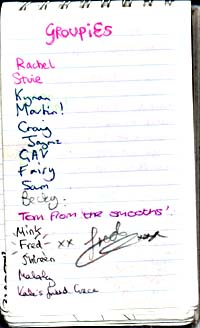 GROUPIES
Rachel
Stvie
Kynan
Martin!
Craig
Jaymz
GAV
Fairy
Sam
Becky:
Tom from 'the smooths'.
Mink
Fred - xx fred xxx
Malaky
Kate's friend Grace